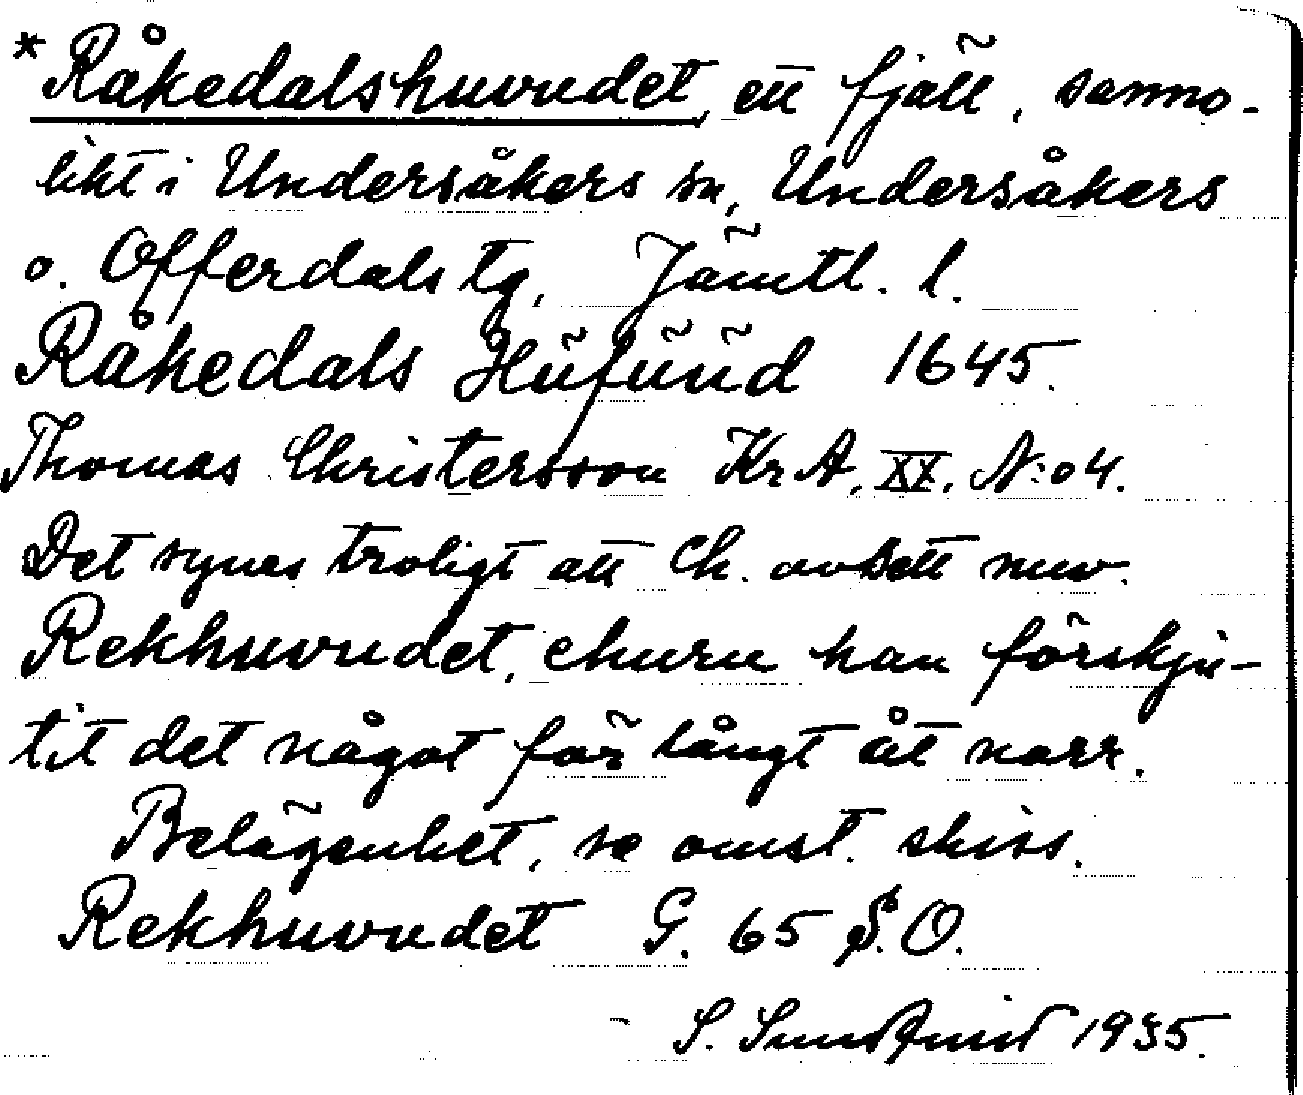 *Råkedalshuvudet, ett fjäll, sanno-
likt i Undersåkers sn, Undersåkers
o. Offerdals tg, Jämtl. l.
Råkedals Hüfuüd 1645.
Thomas Christersson KrA, XX, N:o 4.
Det synes troligt att Ch. avsett nuv.
Rekhuvudet, ehuru han förskju-
tit det något för långt åt norr.
Belägenhet, se omst. skiss.
Rekhuvudet G. 65 S.O.
S. Sundqvist 1935.